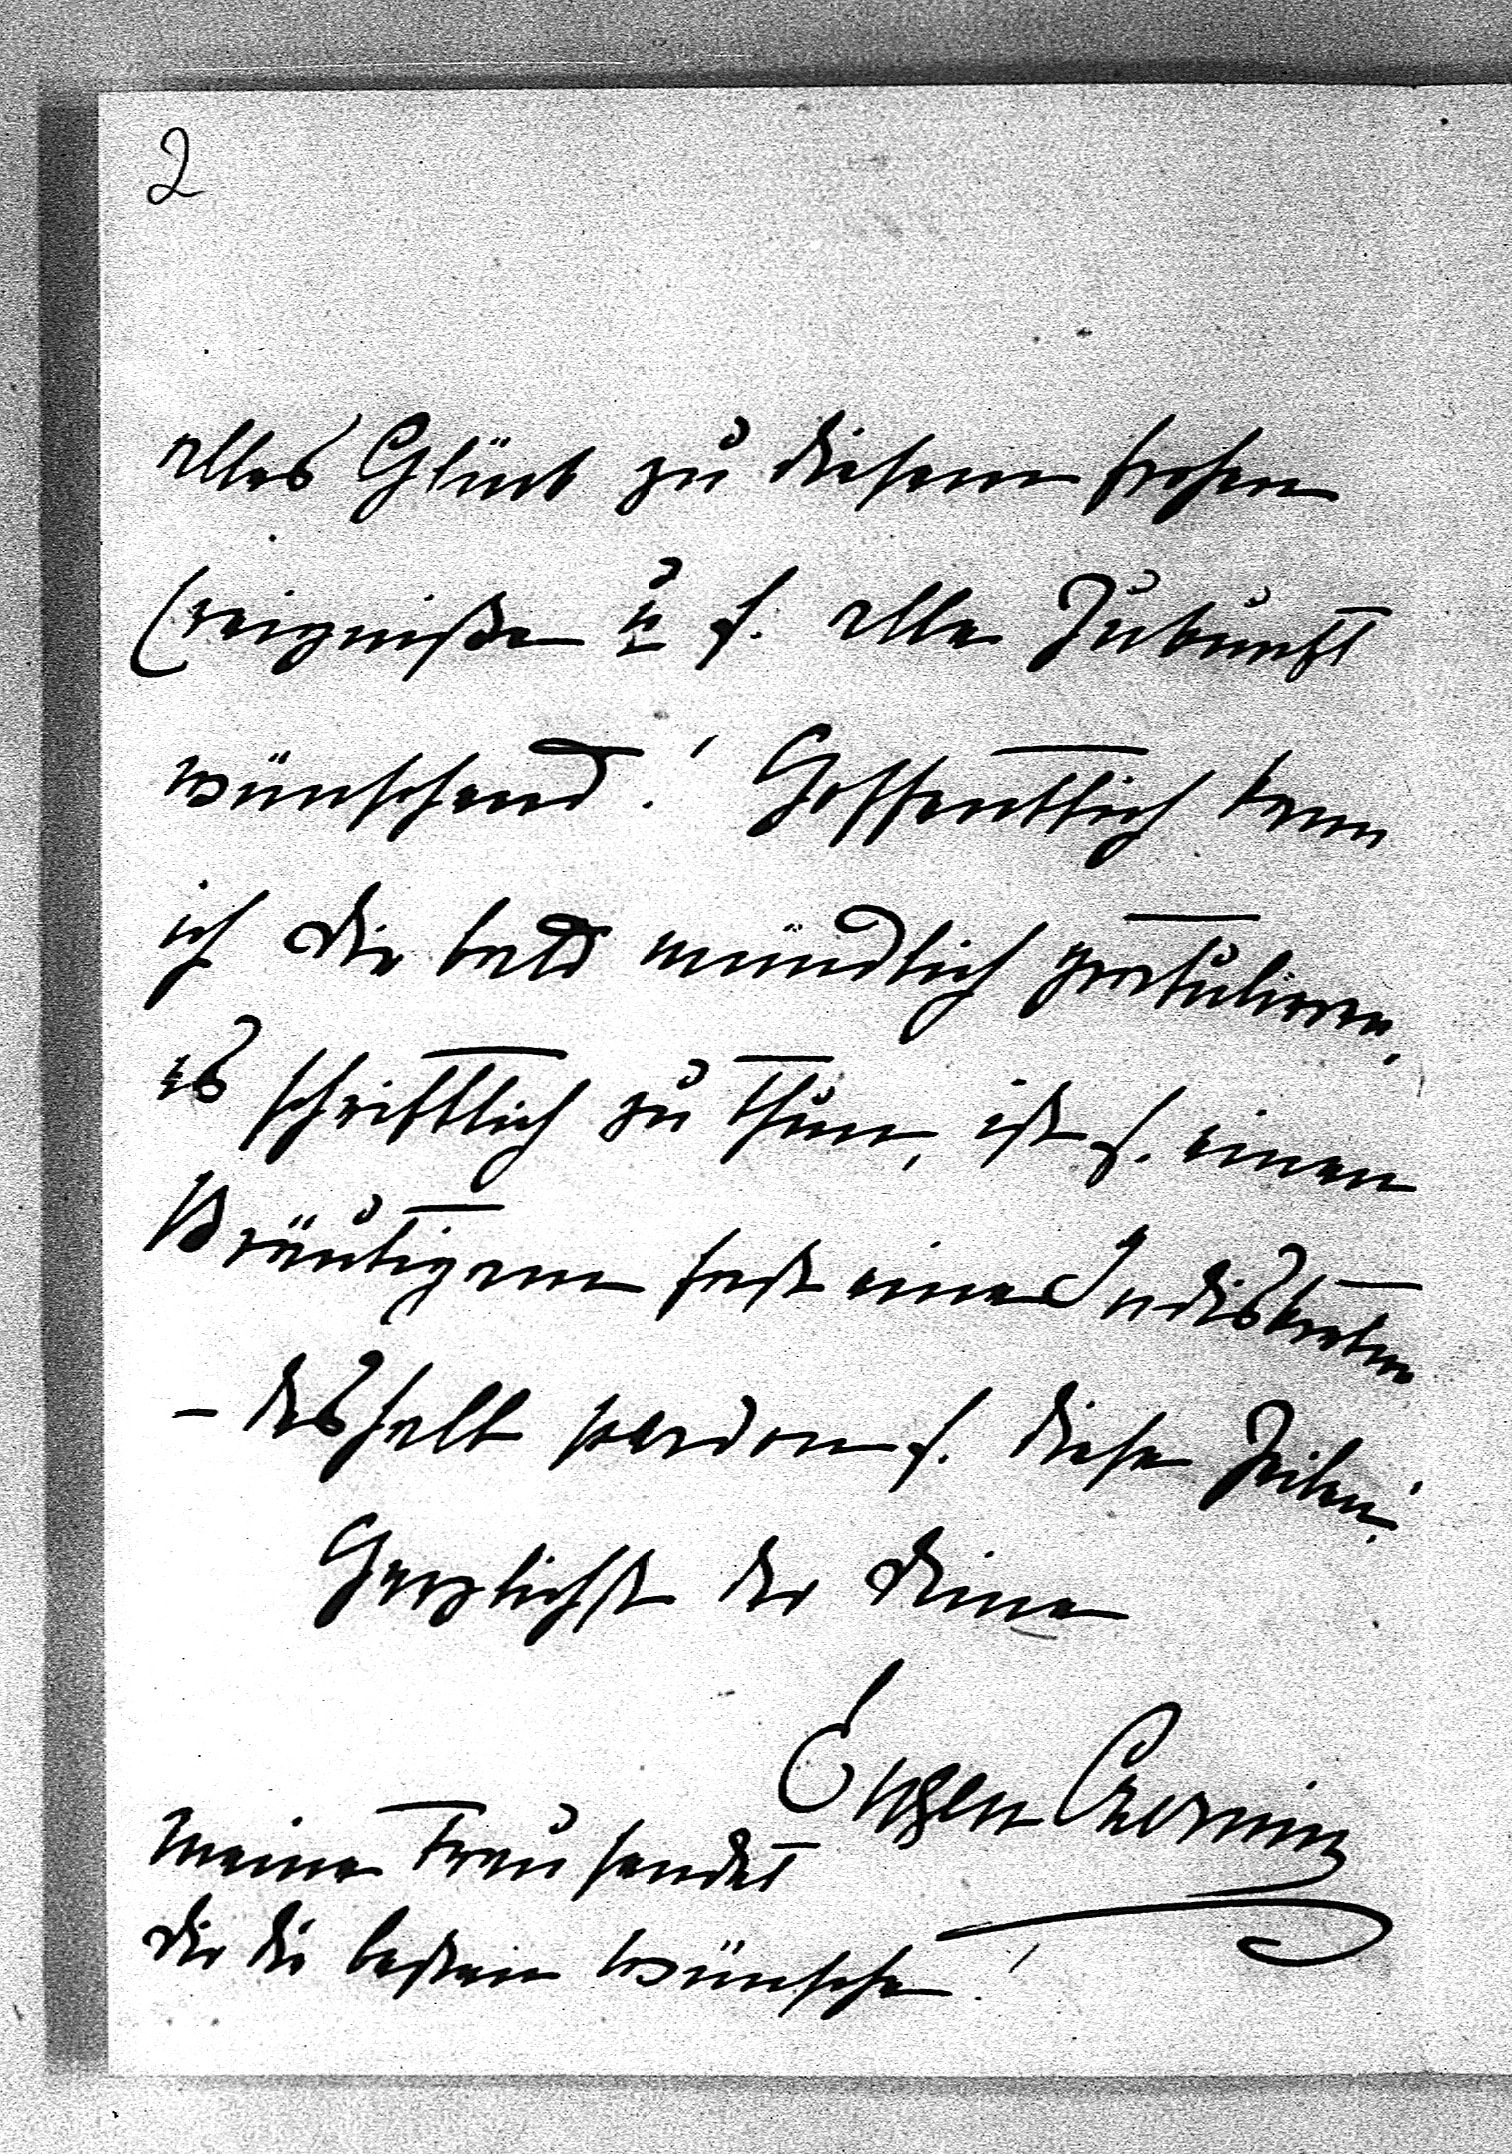 2
alles Glück zu diesem frohen
Ereigniße u f. alle Zukunft
wünschend! Hoffentlich kann
ich Dir bald mündlich gratulieren,
es schriftlich zu thun, ist f. einen
Bräutigam fast eine Indiskretion
– deshalb pardon f. diese Zeilen!
Herzlichst der Deine
Eugen Czernin
Meine Frau sendet
Dir die besten Wünsche!